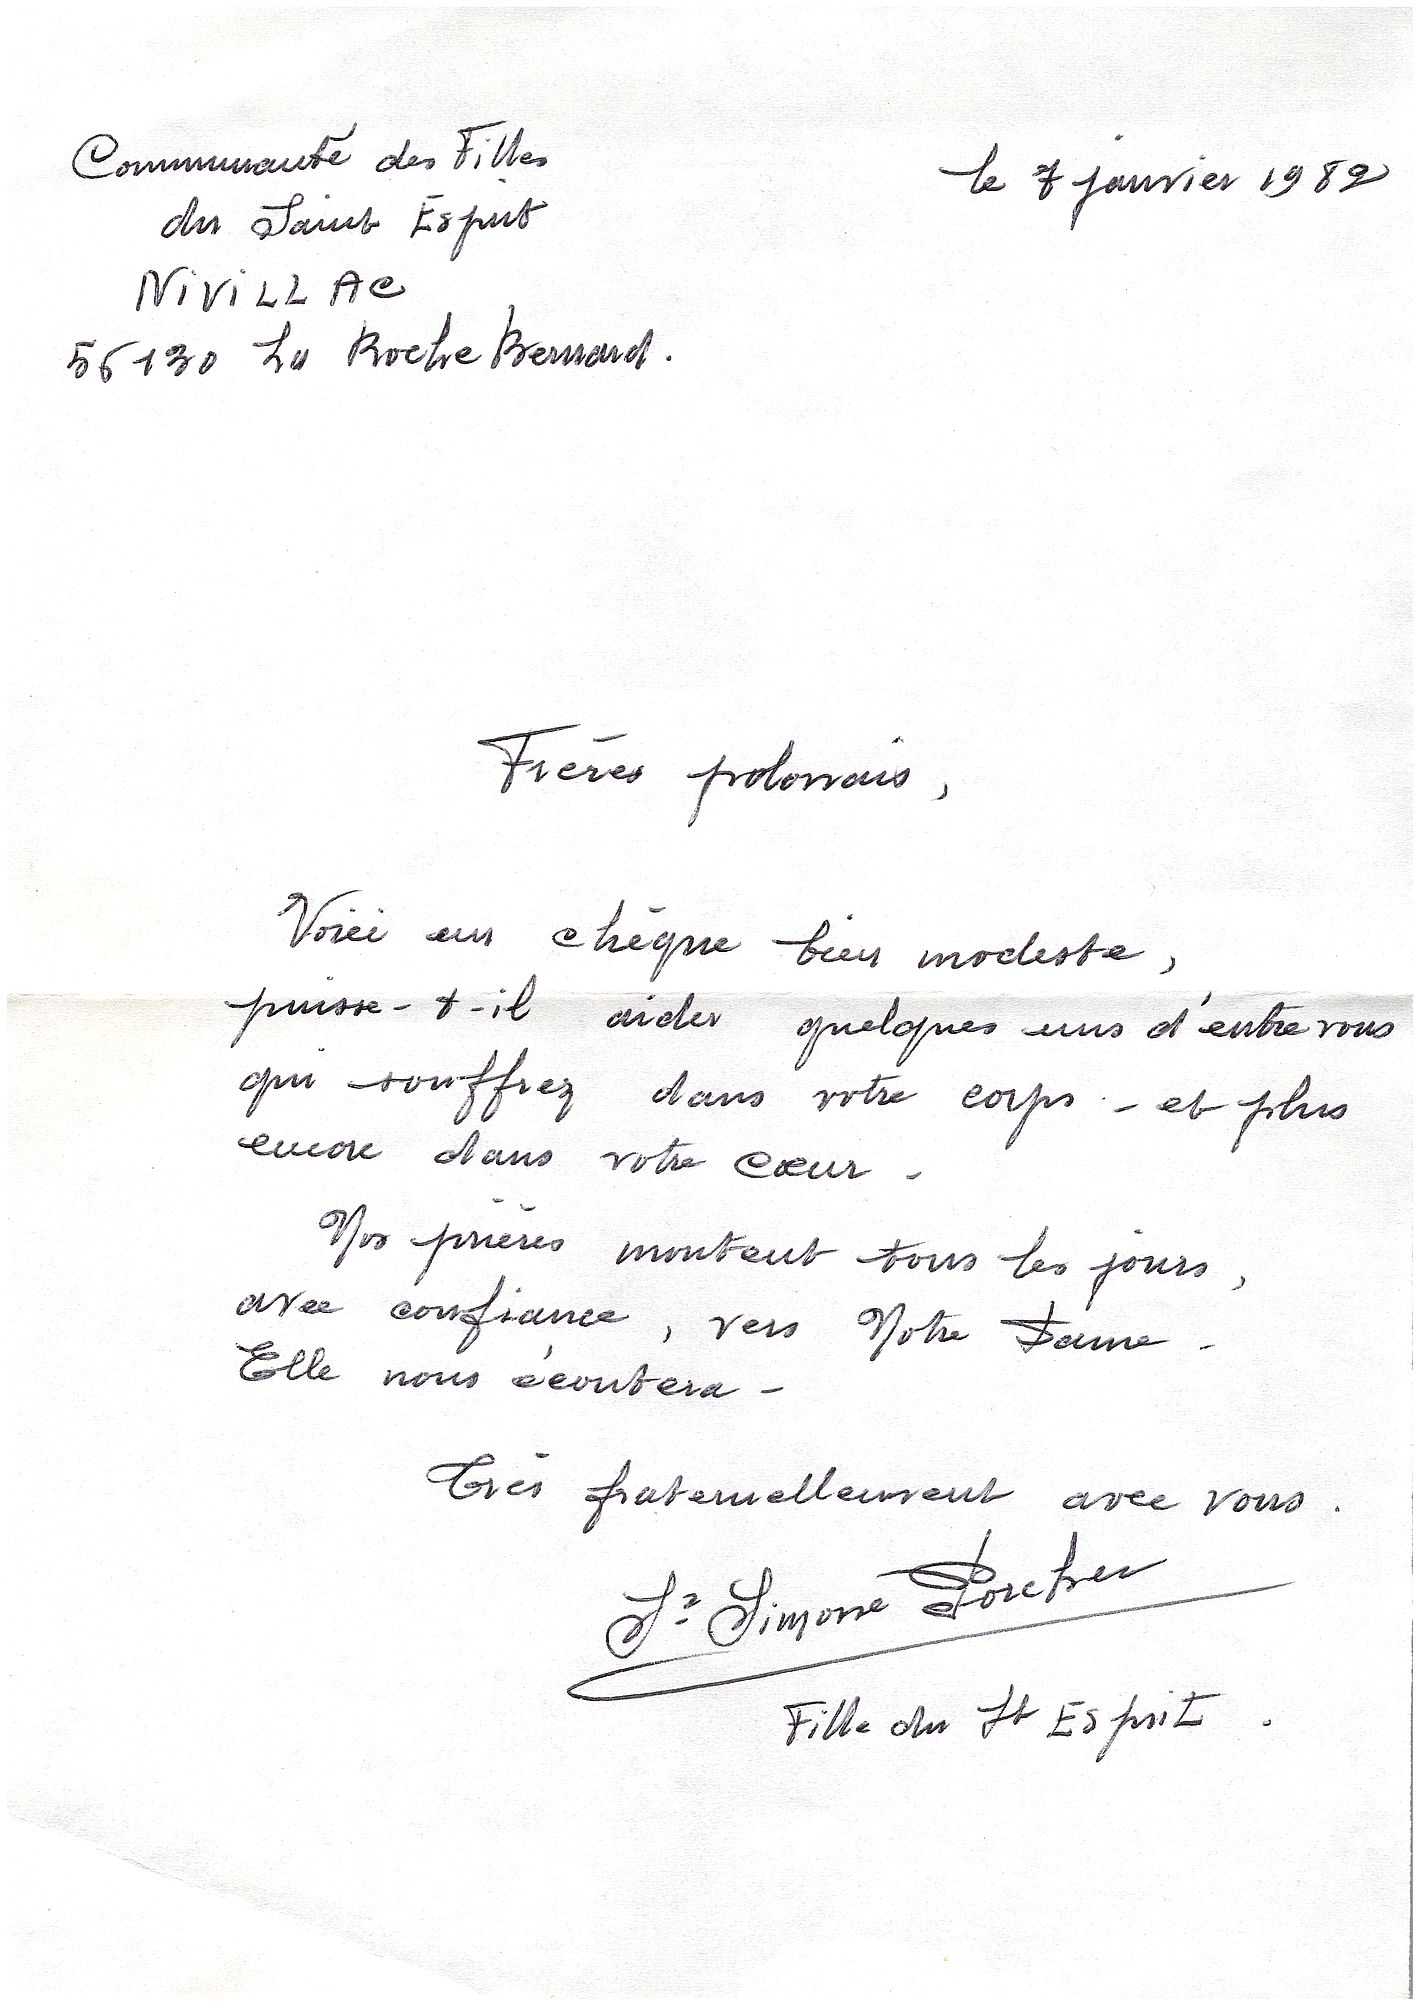 Communauté des Filles
du Saint Esprit
NIVILLAC
56130 La Roche Bernard.
le 7 janvier 1982
Frères polonais,
Voici un chèque bien modeste,
puisse-t-il aider quelques uns d'entre vous
qui souffrez dans votre corps - et plus
encore dans votre cœur -
Nos prières montent tous les jours,
avec confiance, vers Notre Dame -
Elle nous écoutera -
Très fraternellement avec vous.
Sr Simone Porcher
Fille du St Esprit.